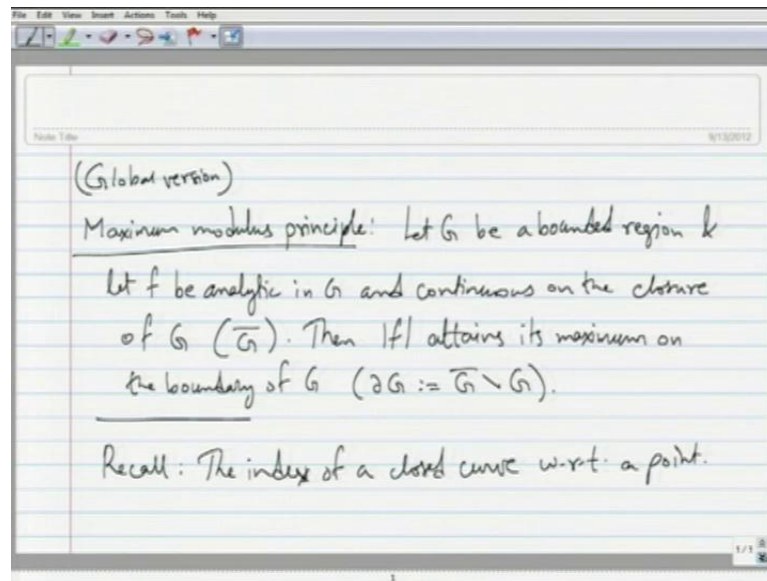 File Edit View Insert Actions Tools Help
Note Title
9/13/2012
(Global version)
Maximum modulus principle: Let G be a bounded region &
let f be analytic in G and continuous on the closure
of G (G̅). Then |f| attains its maximum on
the boundary of G (∂G := G̅ \ G).
Recall: The index of a closed curve w.r.t. a point.
1/1
1